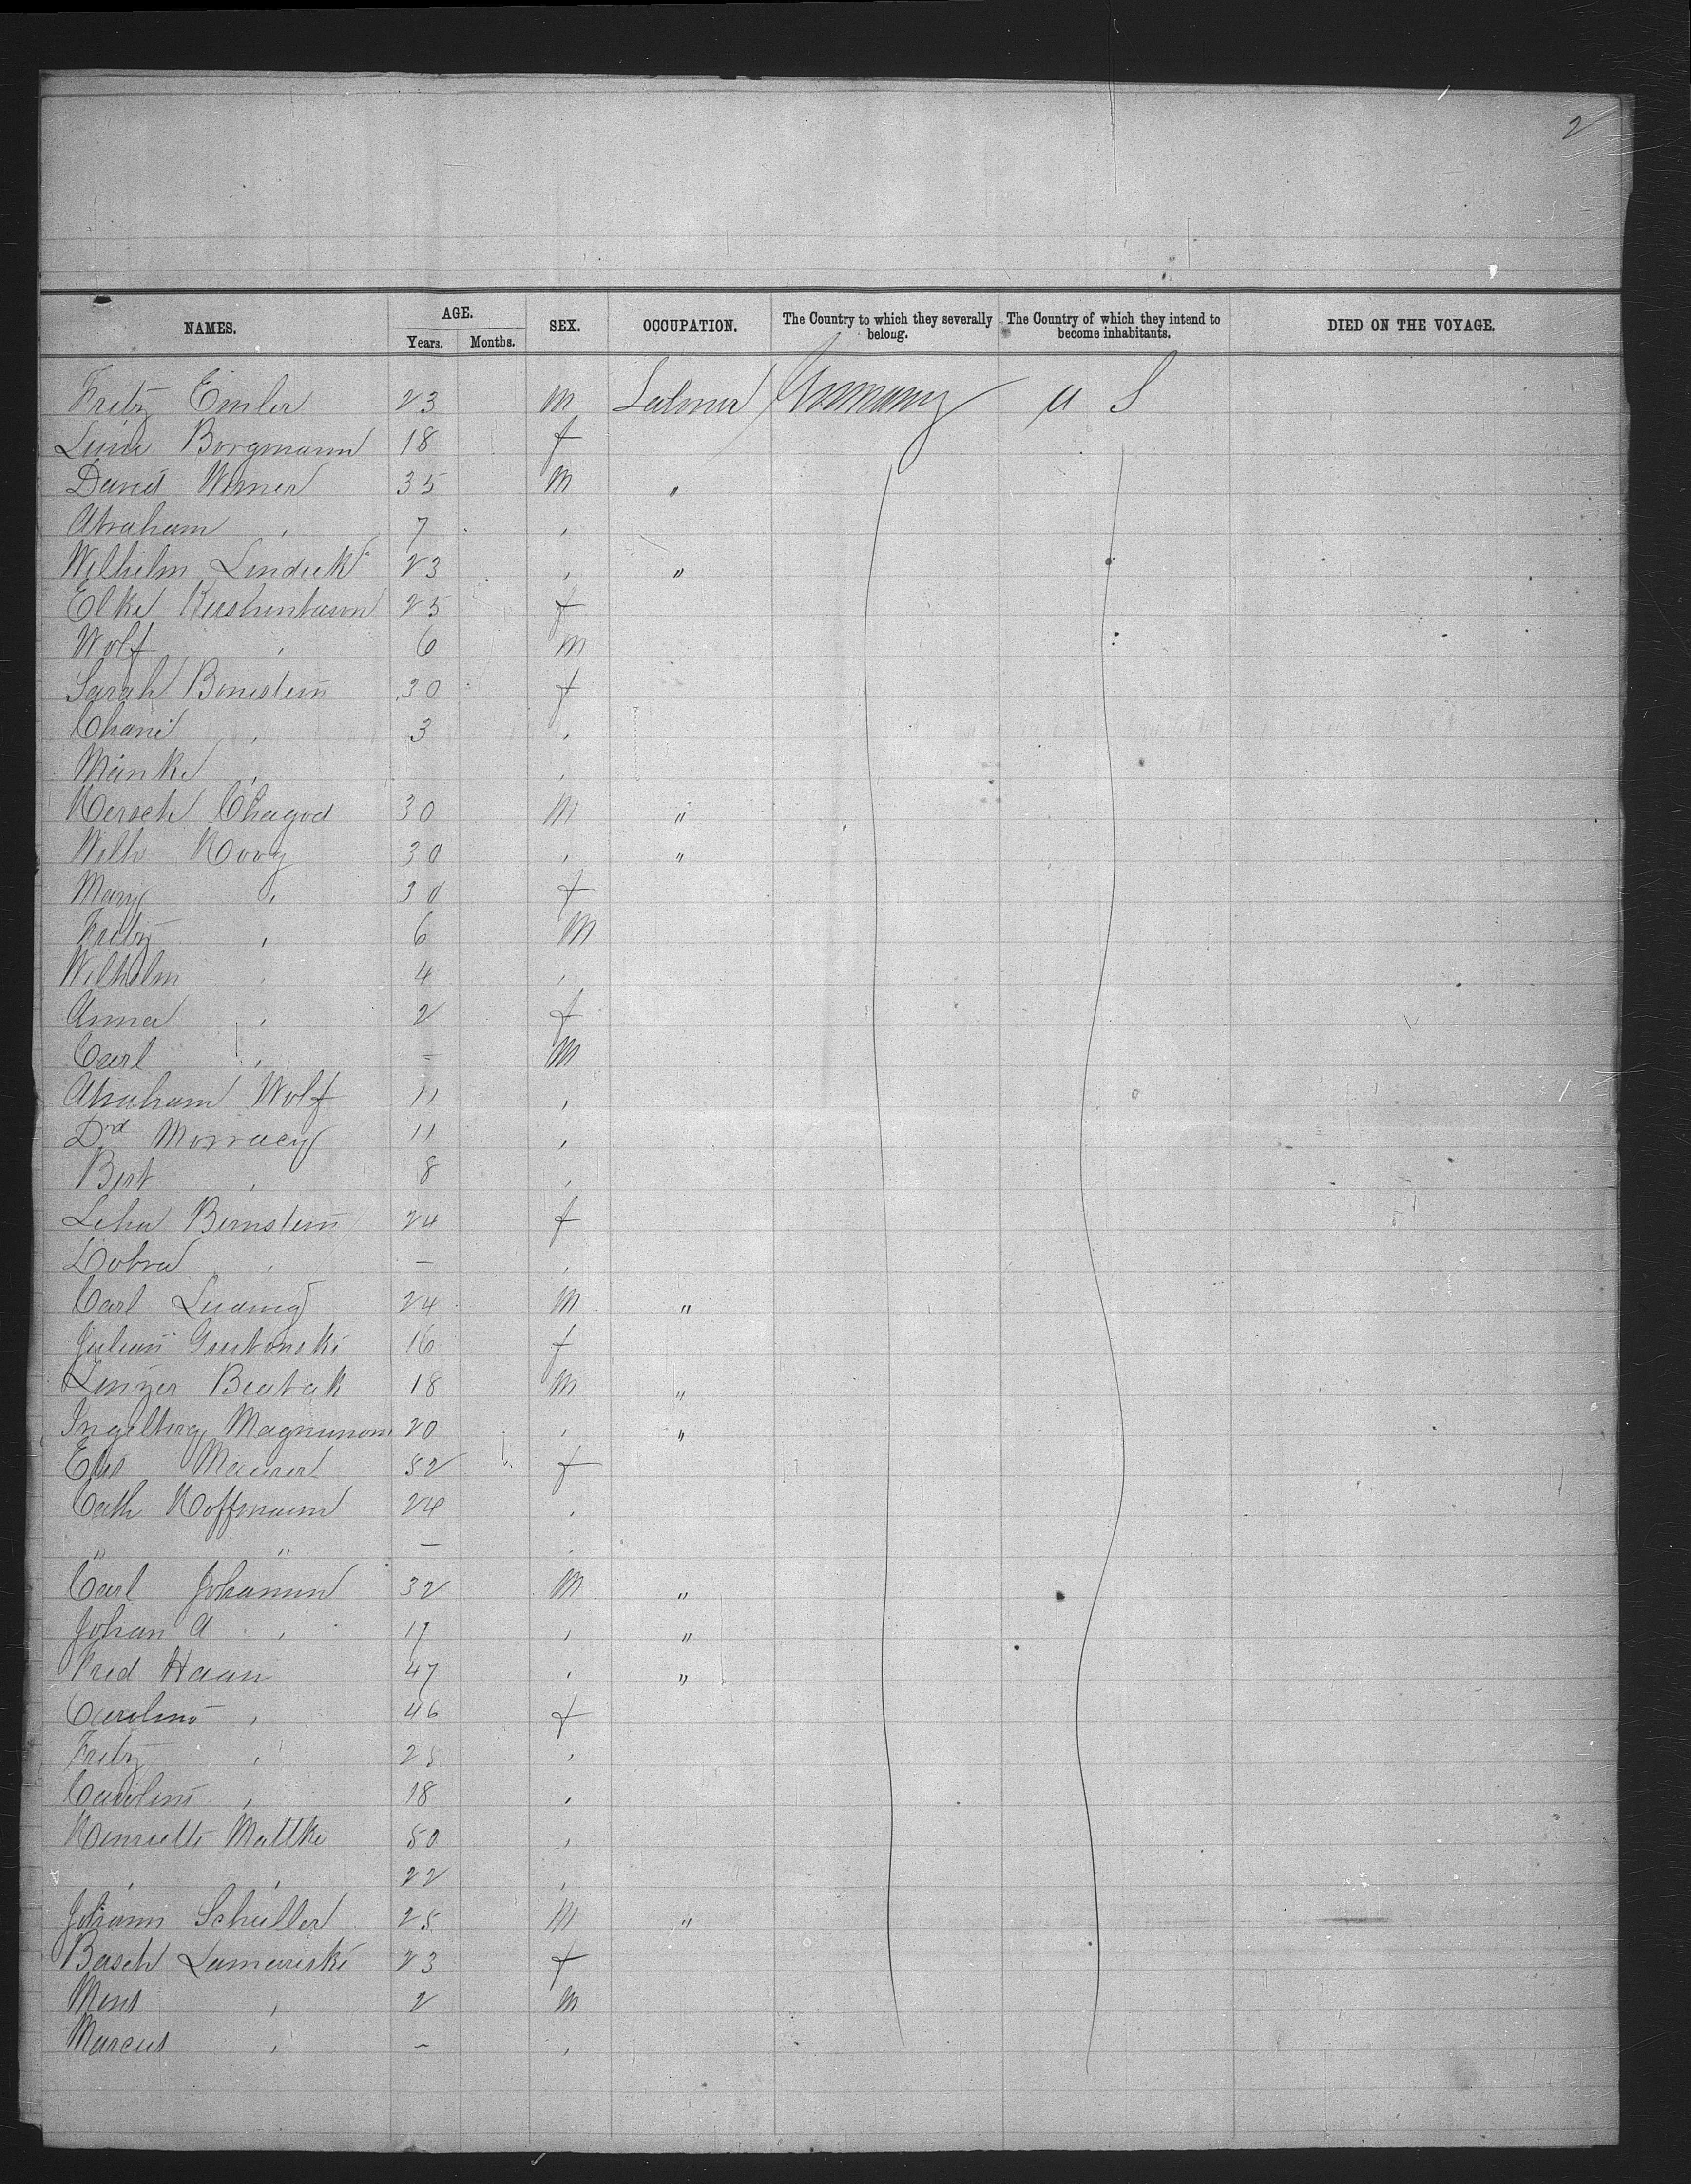 2
NAMES. AGE. SEX. OCCUPATION. The Country to which they severally belong. The Country of which they intend to become inhabitants. DIED ON THE VOYAGE.
Years. Months.
Fritz Emler 23 m Labourer Germany U S
Borgmann 18 f
David Werner 35 m "
Abraham , 7 ,
Wilhelm 23 , "
Elke Kirshenbaum 25 f
Wolf , 6 m
Sarah 30 f
Chane , 3 ,
Minke , ,
Hersch Chagod 30 m "
Wilh Hoog 30 , "
Mary , 30 f
Fritz , 6 m
Wilhelm , 4 ,
Anna , 2 f
Carl , - m
Abraham Wolf 11 ,
11 ,
Bert , 8 ,
Bernstein 24 f
Dobra , - ,
Carl Ludwig 24 m "
16 f
18 m "
20 , "
Maurer 52 f
Cath Hoffmann 24 ,
" " - ,
Carl Johann 32 m "
Johan A , 17 , "
Fred Haan 47 , "
Caroline , 46 f
Fritz , 25 ,
Caroline , 18 ,
Henriette Mattke 50 ,
, , 22 ,
Johann Schuller 25 m "
Basch 23 f
, 2 m
Marcus , - ,